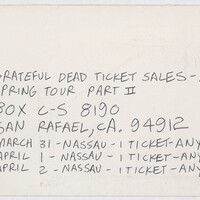 GRATEFUL DEAD TICKET SALES-
SPRING TOUR PART II
BOX C-S 8190
SAN RAFAEL, CA. 94912
MARCH 31-NASSAU-1 TICKET-ANY
APRIL 1-NASSAU-1 TICKET-ANY
APRIL 2-NASSAU-1 TICKET-ANY